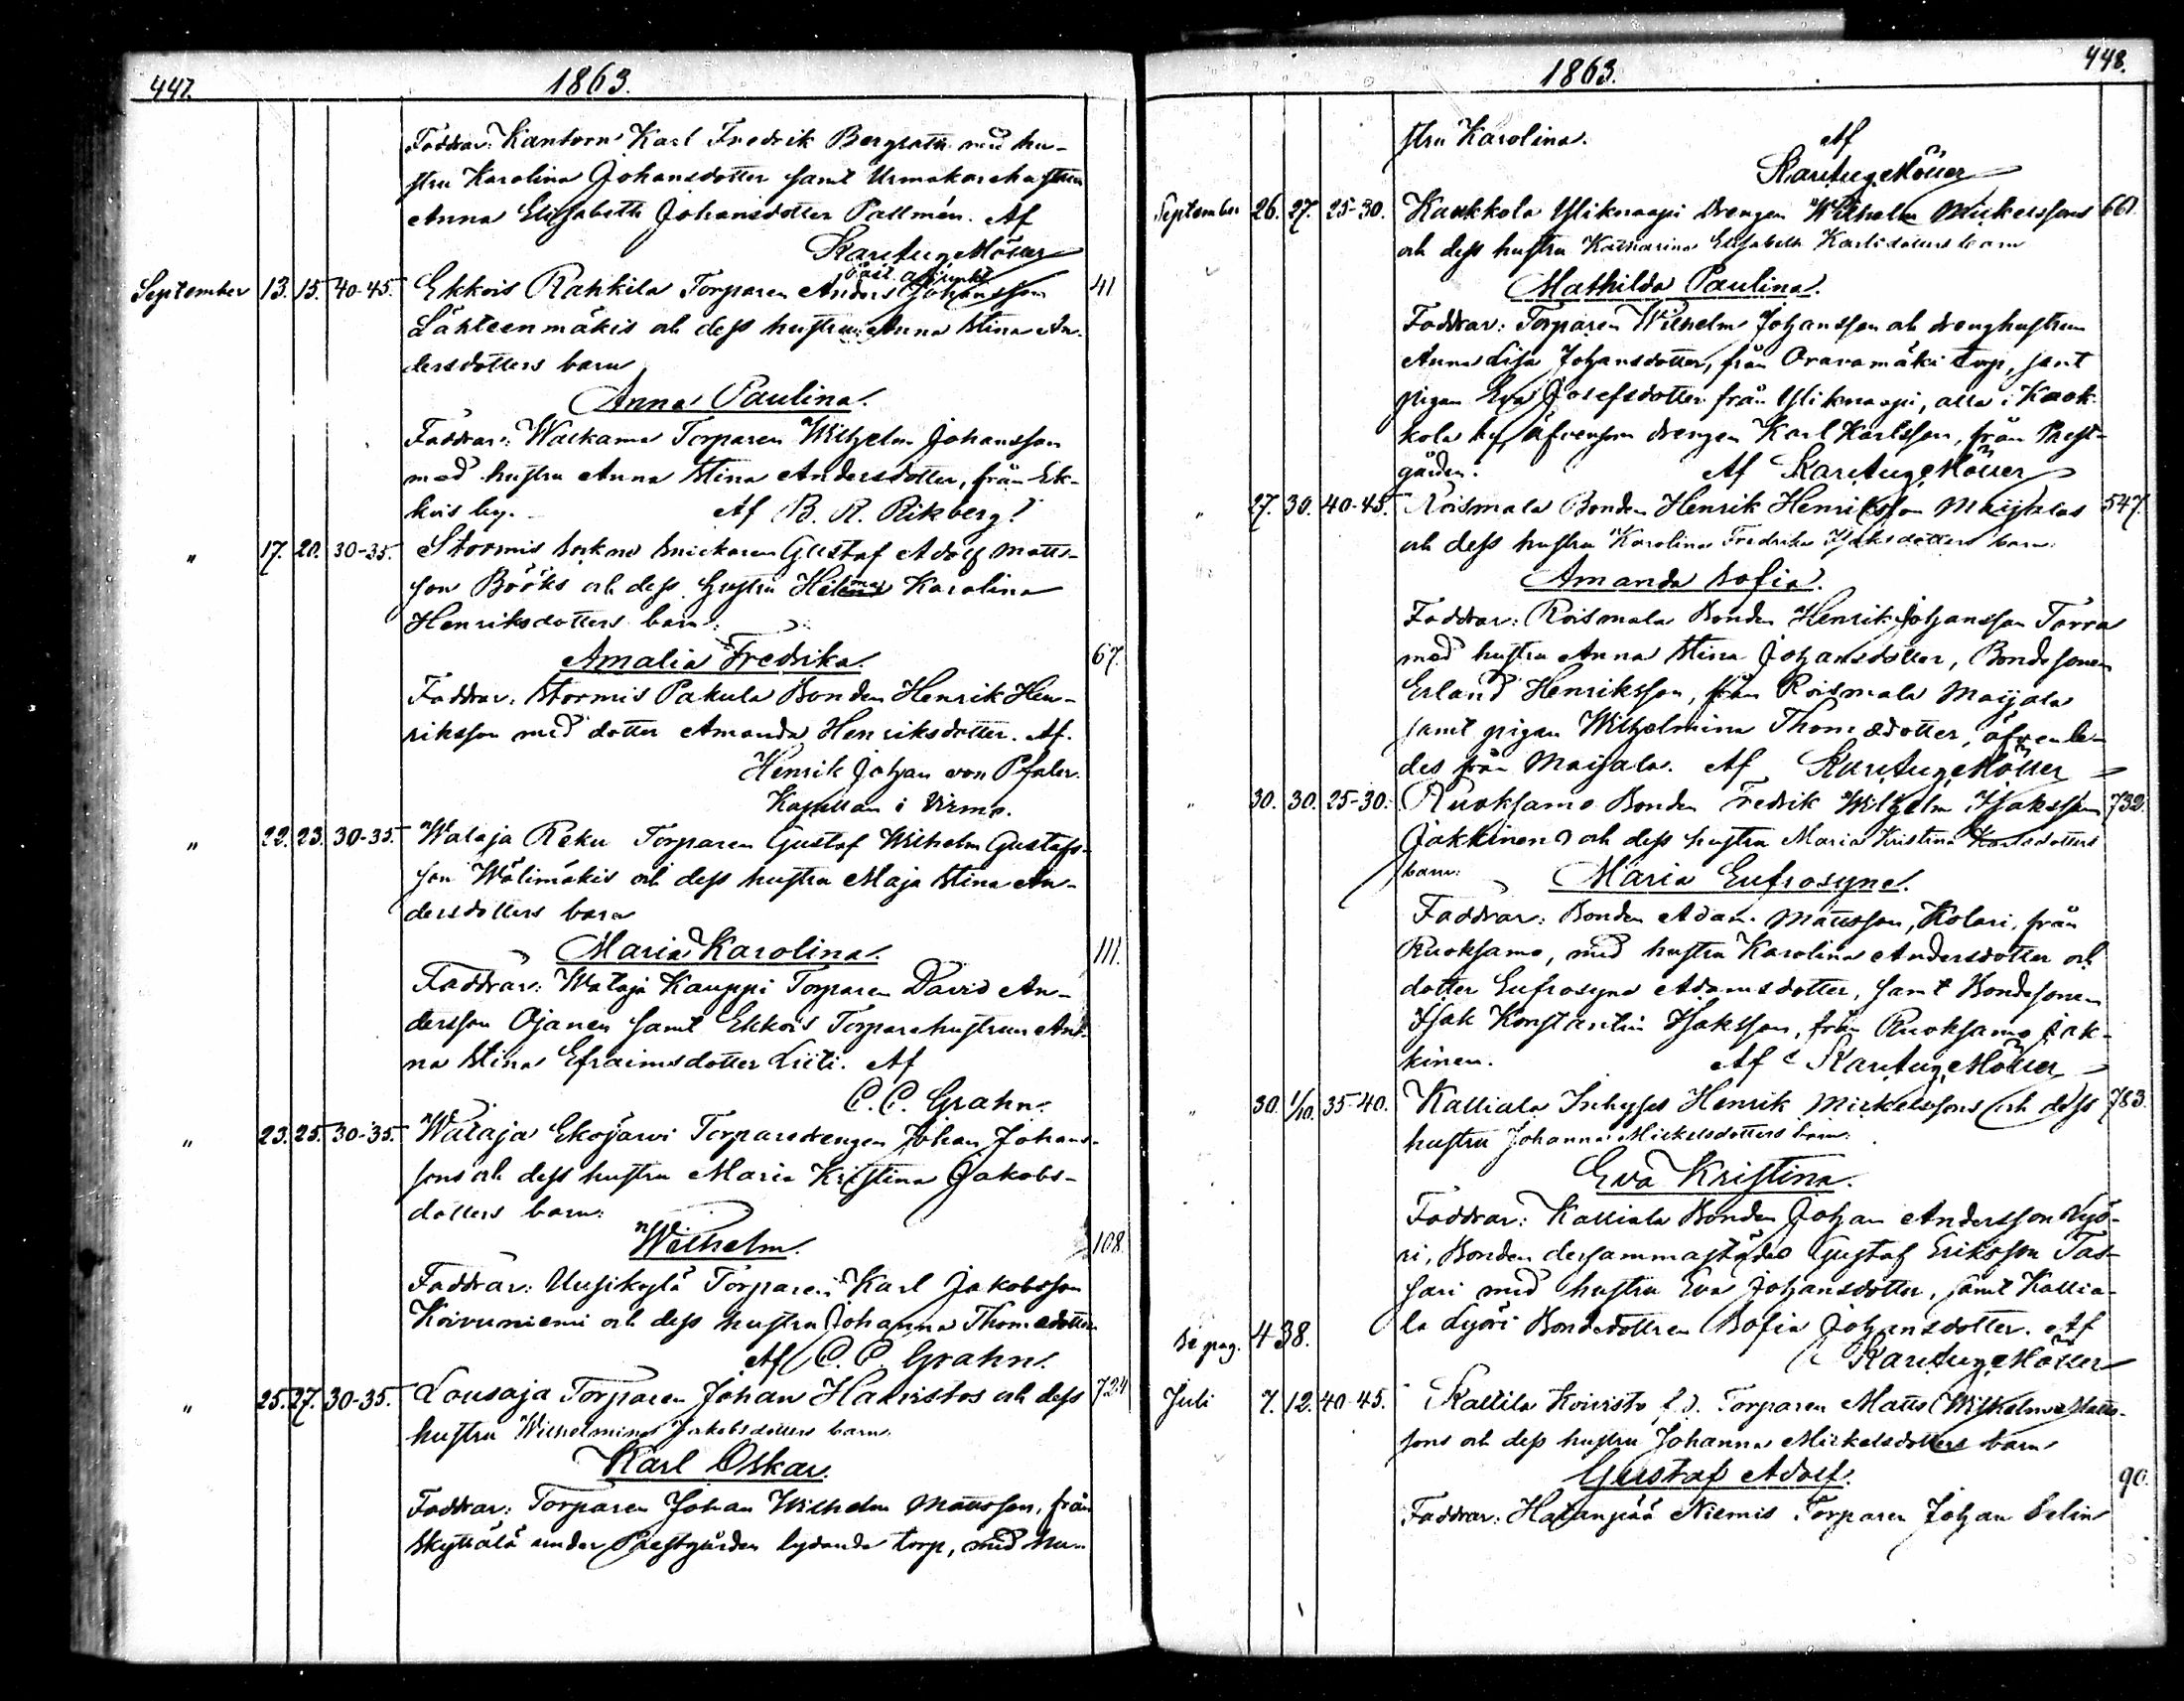 447.
1863.
Faddrar: Kantorn Karl Fredrik Bergroth med hu-
stru Karolina Johansdotter samt Urmakarehustrun
Anna Elisabeth Johansdotter Pallmén. Af
Karl Aug. Möller
vice adjunkt
September 13. 15. 40-45. Ekkois Rahkila Torparen Anders Johansson 41
Lähteenmäkis och dess hustru Anna Stina An-
dersdotters barn
Anna Paulina.
Faddrar: Warkama Torparen Wilhelm Johansson
med hustru Anna Stina Andersdotter, från Ek-
kois by. Af B. R. Rikberg.
" 17. 20. 30-35. Stormis Sockne Snickaren Gustaf Adolf Matts-
son Bööks och dess hustru Karolina
Henriksdotters barn:
Amalia Fredrika. 67.
Faddrar: Stormis Pakula Bonden Henrik Hen-
riksson med dotter Amanda Henriksdotter. Af.
Henrik Johan von Pfaler.
Kapellan i Virmo.
" 22. 23. 30-35. Wataja Reku Torparen Gustaf Wilhelm Gustafs-
son Wälimäkis och dess hustru Maja Stina An-
dersdotters barn
Maria Karolina. 111.
Faddrar: Wataja Kauppi Torparen David An-
dersson Ojanen samt Ekkois Torparehustrun An-
na Stina Efraimsdotter Liiti. Af
C. C. Grahn.
" 23. 25. 30-35. Wataja Ekojärvi Torparedrengen Johan Johans-
sons och dess hustru Maria Kristina Jakobs-
dotters barn:
Wilhelm. 108.
Faddrar: Uusikylä Torparen Karl Jakobsson
Koivuniemi och dess hustru Johanna Thomædotter
Af C. C. Grahn.
" 25. 27. 30-35. Lousaja Torparen Johan Haivistos och dess 724
hustru Wilhelmina Jakobsdotters barn
Karl Oskar.
Faddrar: Torparen Johan Wilhelm Mattsson, från
Skyttälä under Prestgården lydande torp, med hu-
448.
1863.
stru Karolina. Af
Karl Aug. Möller
September 26. 27. 25-30. Kaukkola Yliknaapi Drengen Wilhelm Mickelssons 661.
och dess hustru Katharina Elisabeth Karlsdotters barn
Mathilda Paulina.
Faddrar: Torparen Wilhelm Johansson och drenghustrun
Anna Lisa Johansdotter, från Oravamäki torp, samt
pigan Eva Josefsdotter från Yliknaapi, alla i Kauk-
kola by, äfvensom drengen Karl Karlsson, från Prest-
gården. Af Karl Aug. Möller
" 27. 30. 40-45. Roismala Bonden Henrik Henriksson Maijalas 547.
och dess hustru Karolina Fredrika Isaksdotters barn:
Amanda Sofia.
Faddrar: Roismala Bonden Henrik Johansson Torra
med hustru Anna Stina Johansdotter, Bondesonen
Erland Henriksson, från Roismala Maijala
samt pigan Wilhelmina Thomædotter, äfvenle-
des från Maijala. Af Karl Aug. Möller
" 30. 30. 25-30. Ruoksamo Bonden Fredrik Wilhelm Isaksson 732.
Jakkinens och dess hustru Maria Kristina Karlsdotters
barn: Maria Eufrosyne.
Faddrar: Bonden Adam Mattsson, Kolari, från
Ruoksamo, med hustru Karolina Andersdotter och
dotter Eufrosyne Adamsdotter, samt Bondesonen
Isak Konstantin Isaksson, från Ruoksamo Jak-
kinen. Af Karl Aug. Möller
" 30. 1/10. 35-40. Kalliala Inhyses Henrik Mickelssons och dess 783.
hustru Johanna Mickelsdotters barn:
Eva Kristina.
Faddrar: Kalliala Bonden Johan Andersson Lyö-
ri, Bonden dersammastädes Gustaf Eriksson Tas-
sari med hustru Eva Johansdotter, samt Kallia-
la Lyöri Bondedottren Sofia Johansdotter. Af
Karl Aug. Möller
Se pag. 438.
Juli 7. 12. 40-45. Kallila Koivisto f. d. Torparen Matts Wilhelm Matts-
sons och dess hustru Johanna Mickelsdotters barn
Gustaf Adolf. 90.
Faddrar: Hatanpää Niemis Torparen Johan Selin